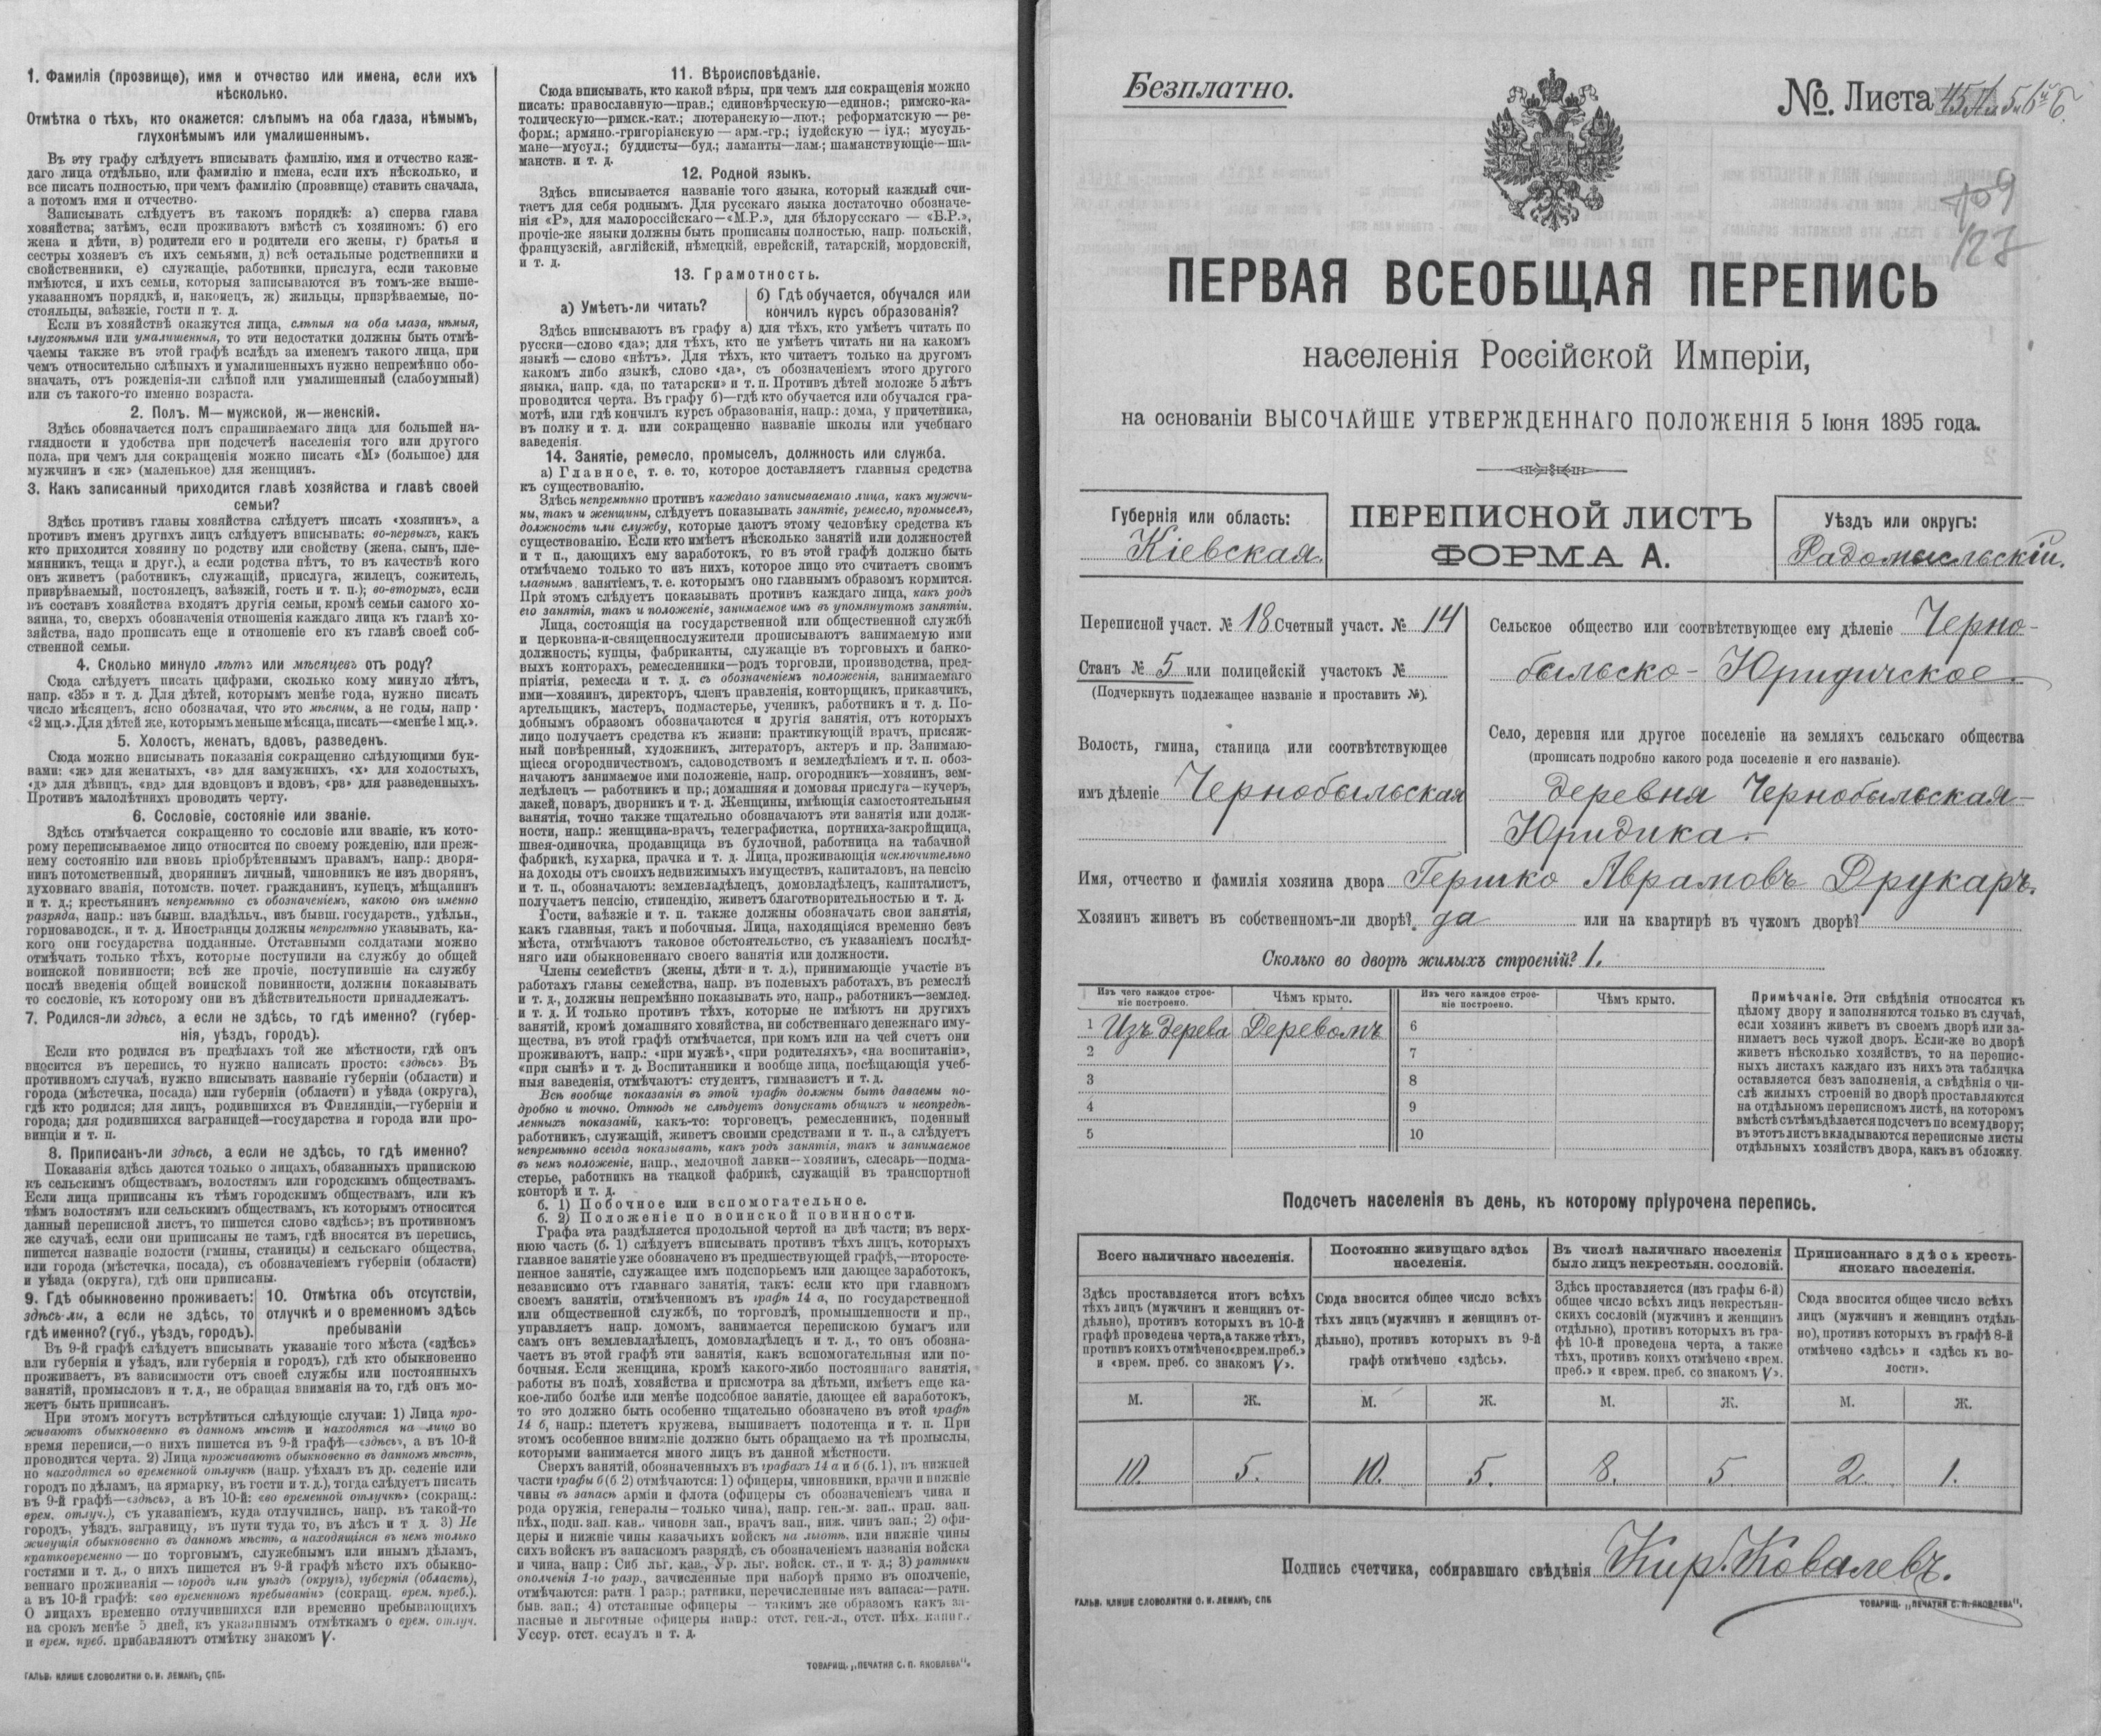 1. Фамилія (прозвище), имя и отчество или имена, если ихъ
нѣсколько.
Отмѣтка о тѣхъ, кто окажется: слѣпымъ на оба глаза, нѣмымъ,
глухонѣмымъ или умалишеннымъ.
Въ эту графу слѣдуетъ вписывать фамилію, имя и отчество каж-
даго лица отдѣльно, или фамилію и имена, если ихъ нѣсколько, и
все писать полностью, при чемъ фамилію (прозвище) ставить сначала,
а потомъ имя и отчество.
Записывать слѣдуетъ въ такомъ порядкѣ: а) сперва глава
хозяйства; затѣмъ, если проживаютъ вмѣстѣ съ хозяиномъ: б) его
жена и дѣти, в) родители его и родители его жены, г) братья и
сестры хозяевъ съ ихъ семьями, д) всѣ остальные родственники и
свойственники, е) служащіе, работники, прислуга, если таковые
имѣются, и ихъ семьи, которыя записываются въ томъ-же выше-
указанномъ порядкѣ, и, наконецъ, ж) жильцы, призрѣваемые, по-
стояльцы, заѣзжіе, гости и т. д.
Если въ хозяйствѣ окажутся лица, слѣпыя на оба глаза, нѣмыя,
глухонѣмыя или умалишенныя, то эти недостатки должны быть отмѣ-
чаемы также въ этой графѣ вслѣдъ за именемъ такого лица, при
чемъ относительно слѣпыхъ и умалишенныхъ нужно непремѣнно обо-
значать, отъ рожденія-ли слѣпой или умалишенный (слабоумный)
или съ такого-то именно возраста.
2. Полъ. М—мужской, ж—женскій.
Здѣсь обозначается полъ спрашиваемаго лица для большей на-
глядности и удобства при подсчетѣ населенія того или другого
пола, при чемъ для сокращенія можно писать «М» (большое) для
мужчинъ и «ж» (маленькое) для женщинъ.
3. Какъ записанный приходится главѣ хозяйства и главѣ своей
семьи?
Здѣсь противъ главы хозяйства слѣдуетъ писать «хозяинъ», а
противъ именъ другихъ лицъ слѣдуетъ вписывать: во-первыхъ, какъ
кто приходится хозяину по родству или свойству (жена, сынъ, пле-
мянникъ, теща и друг.), а если родства нѣтъ, то въ качествѣ кого
онъ живетъ (работникъ, служащій, прислуга, жилецъ, сожитель,
призрѣваемый, постоялецъ, заѣзжій, гость и т. п.); во-вторыхъ, если
въ составъ хозяйства входятъ другія семьи, кромѣ семьи самого хо-
зяина, то, сверхъ обозначенія отношенія каждаго лица къ главѣ хо-
зяйства, надо прописать еще и отношеніе его къ главѣ своей соб-
ственной семьи.
4. Сколько минуло лѣтъ или мѣсяцевъ отъ роду?
Сюда слѣдуетъ писать цифрами, сколько кому минуло лѣтъ,
напр. «35» и т. д. Для дѣтей, которымъ менѣе года, нужно писать
число мѣсяцевъ, ясно обозначая, что это мѣсяцы, а не годы, напр.
«2 мц.». Для дѣтей же, которымъ меньше мѣсяца, писать—«менѣе 1 мц.».
5. Холостъ, женатъ, вдовъ, разведенъ.
Сюда можно вписывать показанія сокращенно слѣдующими бук-
вами: «ж» для женатыхъ, «з» для замужнихъ, «х» для холостыхъ,
«д» для дѣвицъ, «вд» для вдовцовъ и вдовъ, «рз» для разведенныхъ.
Противъ малолѣтнихъ проводить черту.
6. Сословіе, состояніе или званіе.
Здѣсь отмѣчается сокращенно то сословіе или званіе, къ кото-
рому переписываемое лицо относится по своему рожденію, или преж-
нему состоянію или вновь пріобрѣтеннымъ правамъ, напр.: дворя-
нинъ потомственный, дворянинъ личный, чиновникъ не изъ дворянъ,
духовнаго званія, потомств. почет. гражданинъ, купецъ, мѣщанинъ
и т. д.; крестьянинъ непремѣнно съ обозначеніемъ, какого онъ именно
разряда, напр.: изъ бывш. владѣльч., изъ бывш. государств., удѣльн.,
горнозаводск., и т. д. Иностранцы должны непремѣнно указывать, ка-
кого они государства подданные. Отставными солдатами можно
отмѣчать только тѣхъ, которые поступили на службу до общей
воинской повинности; всѣ же прочіе, поступившіе на службу
послѣ введенія общей воинской повинности, должны показывать
то сословіе, къ которому они въ дѣйствительности принадлежатъ.
7. Родился-ли здѣсь, а если не здѣсь, то гдѣ именно? (губер-
нія, уѣздъ, городъ).
Если кто родился въ предѣлахъ той же мѣстности, гдѣ онъ
вносится въ перепись, то нужно написать просто: «здѣсь». Въ
противномъ случаѣ, нужно вписывать названіе губерніи (области) и
города (мѣстечка, посада) или губерніи (области) и уѣзда (округа),
гдѣ кто родился; для лицъ, родившихся въ Финляндіи,—губерніи и
города; для родившихся заграницей—государства и города или про-
винціи и т. п.
8. Приписанъ-ли здѣсь, а если не здѣсь, то гдѣ именно?
Показанія здѣсь даются только о лицахъ, обязанныхъ припискою
къ сельскимъ обществамъ, волостямъ или городскимъ обществамъ.
Если лица приписаны къ тѣмъ городскимъ обществамъ, или къ
тѣмъ волостямъ или сельскимъ обществамъ, къ которымъ относится
данный переписной листъ, то пишется слово «здѣсь»; въ противномъ
же случаѣ, если они приписаны не тамъ, гдѣ вносятся въ перепись,
пишется названіе волости (гмины, станицы) и сельскаго общества,
или города (мѣстечка, посада), съ обозначеніемъ губерніи (области)
и уѣзда (округа), гдѣ они приписаны.
9. Гдѣ обыкновенно проживаетъ:
здѣсь-ли, а если не здѣсь, то
гдѣ именно? (губ., уѣздъ, городъ).
10. Отмѣтка объ отсутствіи,
отлучкѣ и о временномъ здѣсь
пребываніи
Въ 9-й графѣ слѣдуетъ вписывать указаніе того мѣста («здѣсь»
или губернія и уѣздъ, или губернія и городъ), гдѣ кто обыкновенно
проживаетъ, въ зависимости отъ своей службы или постоянныхъ
занятій, промысловъ и т. д., не обращая вниманія на то, гдѣ онъ мо-
жетъ быть приписанъ.
При этомъ могутъ встрѣтиться слѣдующіе случаи: 1) Лица про-
живаютъ обыкновенно въ данномъ мѣстѣ и находятся на лицо во
время переписи,—о нихъ пишется въ 9-й графѣ—«здѣсь», а въ 10-й
проводится черта. 2) Лица проживаютъ обыкновенно въ данномъ мѣстѣ,
но находятся во временной отлучкѣ (напр. уѣхалъ въ др. селеніе или
городъ по дѣламъ, на ярмарку, въ гости и т. д.), тогда слѣдуетъ писать
въ 9-й графѣ—«здѣсь», а въ 10-й: «во временной отлучкѣ» (сокращ.:
врем. отлуч.), съ указаніемъ, куда отлучились, напр. въ такой-то
городъ, уѣздъ, заграницу, въ пути туда то, въ лѣсъ и т д. 3) Не
живущія обыкновенно въ данномъ мѣстѣ, а находящіяся въ немъ только
кратковременно — по торговымъ, служебнымъ или инымъ дѣламъ,
гостями и т. д., о нихъ пишется въ 9-й графѣ мѣсто ихъ обыкно-
веннаго проживанія — городъ или уѣздъ (округъ), губернія (область),
а въ 10-й графѣ: «во временномъ пребываніи» (сокращ. врем. преб.).
О лицахъ временно отлучившихся или временно пребывающихъ
на срокъ менѣе 5 дней, къ указаннымъ отмѣткамъ о врем. отлуч.
и врем. преб. прибавляютъ отмѣтку знакомъ V.
ГАЛЬВ. КЛИШЕ СЛОВОЛИТНИ О. И. ЛЕМАНЪ, СПБ.
11. Вѣроисповѣданіе.
Сюда вписывать, кто какой вѣры, при чемъ для сокращенія можно
писать: православную—прав.; единовѣрческую—единов.; римско-ка-
толическую—римск.-кат.; лютеранскую—лют.; реформатскую — ре-
форм.; армяно.-григоріанскую — арм.-гр.; іудейскую — іуд.; мусуль-
мане—мусул.; буддисты—буд.; ламаиты—лам.; шаманствующіе—ша-
манств. и т. д.
12. Родной языкъ.
Здѣсь вписывается названіе того языка, который каждый счи-
таетъ для себя роднымъ. Для русскаго языка достаточно обозначе-
нія «Р», для малороссійскаго—«М.Р.», для бѣлорусскаго — «Б.Р.»,
прочіе-же языки должны быть прописаны полностью, напр. польскій,
французскій, англійскій, нѣмецкій, еврейскій, татарскій, мордовскій,
и т. д.
13. Грамотность.
а) Умѣетъ-ли читать?
б) Гдѣ обучается, обучался или
кончилъ курсъ образованія?
Здѣсь вписываютъ въ графу а) для тѣхъ, кто умѣетъ читать по
русски—слово «да»; для тѣхъ, кто не умѣетъ читать ни на какомъ
языкѣ — слово «нѣтъ». Для тѣхъ, кто читаетъ только на другомъ
какомъ либо языкѣ, слово «да», съ обозначеніемъ этого другого
языка, напр. «да, по татарски» и т. п. Противъ дѣтей моложе 5 лѣтъ
проводится черта. Въ графу б)—гдѣ кто обучается или обучался гра-
мотѣ, или гдѣ кончилъ курсъ образованія, напр.: дома, у причетника,
въ полку и т. д. или сокращенно названіе школы или учебнаго
заведенія.
14. Занятіе, ремесло, промыселъ, должность или служба.
а) Главное, т. е. то, которое доставляетъ главныя средства
къ существованію.
Здѣсь непремѣнно противъ каждаго записываемаго лица, какъ мужчи-
ны, такъ и женщины, слѣдуетъ показывать занятіе, ремесло, промыселъ,
должность или службу, которые даютъ этому человѣку средства къ
существованію. Если кто имѣетъ нѣсколько занятій или должностей
и т п., дающихъ ему заработокъ, то въ этой графѣ должно быть
отмѣчаемо только то изъ нихъ, которое лицо это считаетъ своимъ
главнымъ занятіемъ, т. е. которымъ оно главнымъ образомъ кормится.
При этомъ слѣдуетъ показывать противъ каждаго лица, какъ родъ
его занятія, такъ и положеніе, занимаемое имъ въ упомянутомъ занятіи.
Лица, состоящія на государственной или общественной службѣ
и церковно-и-священнослужители прописываютъ занимаемую ими
должность; купцы, фабриканты, служащіе въ торговыхъ и банко-
выхъ конторахъ, ремесленники—родъ торговли, производства, пред-
пріятія, ремесла и т. д. съ обозначеніемъ положенія, занимаемаго
ими—хозяинъ, директоръ, членъ правленія, конторщикъ, приказчикъ,
артельщикъ, мастеръ, подмастерье, ученикъ, работникъ и т. д. По-
добнымъ образомъ обозначаются и другія занятія, отъ которыхъ
лицо получаетъ средства къ жизни: практикующій врачъ, присяж-
ный повѣренный, художникъ, литераторъ, актеръ и пр. Занимаю-
щіеся огородничествомъ, садоводствомъ и земледѣліемъ и т. п. обоз-
начаютъ занимаемое ими положеніе, напр. огородникъ—хозяинъ, зем-
ледѣлецъ — работникъ и пр.; домашняя и домовая прислуга—кучеръ,
лакей, поваръ, дворникъ и т. д. Женщины, имѣющія самостоятельныя
занятія, точно также тщательно обозначаютъ эти занятія или долж-
ности, напр.: женщина-врачъ, телеграфистка, портниха-закройщица,
швея-одиночка, продавщица въ булочной, работница на табачной
фабрикѣ, кухарка, прачка и т. д. Лица, проживающія исключительно
на доходы отъ своихъ недвижимыхъ имуществъ, капиталовъ, на пенсію
и т. п., обозначаютъ: землевладѣлецъ, домовладѣлецъ, капиталистъ,
получаетъ пенсію, стипендію, живетъ благотворительностью и т. д.
Гости, заѣзжіе и т. п. также должны обозначать свои занятія,
какъ главныя, такъ и побочныя. Лица, находящіяся временно безъ
мѣста, отмѣчаютъ таковое обстоятельство, съ указаніемъ послѣд-
няго или обыкновеннаго своего занятія или должности.
Члены семействъ (жены, дѣти и т. д.), принимающіе участіе въ
работахъ главы семейства, напр. въ полевыхъ работахъ, въ ремеслѣ
и т. д., должны непремѣнно показывать это, напр., работникъ—землед.
и т. д. И только противъ тѣхъ, которые не имѣютъ ни другихъ
занятій, кромѣ домашняго хозяйства, ни собственнаго денежнаго иму-
щества, въ этой графѣ отмѣчается, при комъ или на чей счетъ они
проживаютъ, напр.: «при мужѣ», «при родителяхъ», «на воспитаніи»,
«при сынѣ» и т. д. Воспитанники и вообще лица, посѣщающія учеб-
ныя заведенія, отмѣчаютъ: студентъ, гимназистъ и т. д.
Всѣ вообще показанія въ этой графѣ должны быть даваемы по-
дробно и точно. Отнюдь не слѣдуетъ допускать общихъ и неопредѣ-
ленныхъ показаній, какъ-то: торговецъ, ремесленникъ, поденный
работникъ, служащій, живетъ своими средствами и т. п., а слѣдуетъ
непремѣнно всегда показывать, какъ родъ занятія, такъ и занимаемое
въ немъ положеніе, напр., мелочной лавки—хозяинъ, слесарь—подма-
стерье, работникъ на ткацкой фабрикѣ, служащій въ транспортной
конторѣ и т. д.
б. 1) Побочное или вспомогательное.
б. 2) Положеніе по воинской повинности.
Графа эта раздѣляется продольной чертой на двѣ части; въ верх-
нюю часть (б. 1) слѣдуетъ вписывать противъ тѣхъ лицъ, которыхъ
главное занятіе уже обозначено въ предшествующей графѣ,—второсте-
пенное занятіе, служащее имъ подспорьемъ или дающее заработокъ,
независимо отъ главнаго занятія, такъ: если кто при главномъ
своемъ занятіи, отмѣченномъ въ графѣ 14 а, по государственной
или общественной службѣ, по торговлѣ, промышленности и пр.,
управляетъ напр. домомъ, занимается перепискою бумагъ или
самъ онъ землевладѣлецъ, домовладѣлецъ и т. д., то онъ обозна-
чаетъ въ этой графѣ эти занятія, какъ вспомогательныя или по-
бочныя. Если женщина, кромѣ какого-либо постояннаго занятія,
работы въ полѣ, хозяйства и присмотра за дѣтьми, имѣетъ еще ка-
кое-либо болѣе или менѣе подсобное занятіе, дающее ей заработокъ,
то это должно быть особенно тщательно обозначено въ этой графѣ
14 б, напр.: плететъ кружева, вышиваетъ полотенца и т. п. При
этомъ особенное вниманіе должно быть обращаемо на тѣ промыслы,
которыми занимается много лицъ въ данной мѣстности.
Сверхъ занятій, обозначенныхъ въ графахъ 14 а и б (б. 1), въ нижней
части графы б (б. 2) отмѣчаются: 1) офицеры, чиновники, врачи и нижніе
чины въ запасѣ арміи и флота (офицеры съ обозначеніемъ чина и
рода оружія, генералы—только чина), напр. ген.-м. зап., прап. зап.
пѣх., подп. зап. кав.. чиновн зап., врачъ зап., ниж. чинъ зап.; 2) офи-
церы и нижніе чины казачьихъ войскъ на льготѣ, или нижніе чины
сихъ войскъ въ запасномъ разрядѣ, съ обозначеніемъ названія войска
и чина, напр: Сиб льг. каз., Ур. льг. войск. ст., и т. д.; 3) ратники
ополченія 1-го разр., зачисленные при наборѣ прямо въ ополченіе,
отмѣчаются: ратн 1 разр.; ратники, перечисленные изъ запаса:—ратн.
быв. зап.; 4) отставные офицеры — такимъ же образомъ какъ за-
пасные и льготные офицеры напр.: отст. ген.-л., отст. пѣх. капит.,
Уссур. отст. есаулъ и т. д.
ТОВАРИЩ. „ПЕЧАТНЯ С. П. ЯКОВЛЕВА“.
Безплатно.
№ Листа
109
127
ПЕРВАЯ ВСЕОБЩАЯ ПЕРЕПИСЬ
населенія Россійской Имперіи,
на основаніи ВЫСОЧАЙШЕ УТВЕРЖДЕННАГО ПОЛОЖЕНІЯ 5 Іюня 1895 года.
Губернія или область:
Кіевская.
ПЕРЕПИСНОЙ ЛИСТЪ
ФОРМА А.
Уѣздъ или округъ:
Радомысльскій.
Переписной участ. № 18 Счетный участ. № 14
Станъ № 5 или полицейскій участокъ №
(Подчеркнуть подлежащее названіе и проставить №).
Волость, гмина, станица или соотвѣтствующее
имъ дѣленіе Чернобыльская
Сельское общество или соотвѣтствующее ему дѣленіе Черно-
быльско-Юридичское.
Село, деревня или другое поселеніе на земляхъ сельскаго общества
(прописать подробно какого рода поселеніе и его названіе).
деревня Чернобыльская-
Юридика.
Имя, отчество и фамилія хозяина двора Гершко Аврамовъ Друкаръ.
Хозяинъ живетъ въ собственномъ-ли дворѣ? да или на квартирѣ въ чужомъ дворѣ?
Сколько во дворѣ жилыхъ строеній? 1.
Изъ чего каждое строе-
ніе построено.
Чѣмъ крыто.
Изъ чего каждое строе-
ніе построено.
Чѣмъ крыто.
1 Изъ дерева Деревомъ 6
2 7
3 8
4 9
5 10
Примѣчаніе. Эти свѣдѣнія относятся къ
цѣлому двору и заполняются только въ случаѣ,
если хозяинъ живетъ въ своемъ дворѣ или за-
нимаетъ весь чужой дворъ. Если-же во дворѣ
живетъ нѣсколько хозяйствъ, то на перепис-
ныхъ листахъ каждаго изъ нихъ эта табличка
оставляется безъ заполненія, а свѣдѣнія о чи-
слѣ жилыхъ строеній во дворѣ проставляются
на отдѣльномъ переписномъ листѣ, на которомъ
вмѣстѣ съ тѣмъ дѣлается подсчетъ по всему двору;
въ этотъ листъ вкладываются переписные листы
отдѣльныхъ хозяйствъ двора, какъ въ обложку.
Подсчетъ населенія въ день, къ которому пріурочена перепись.
Всего наличнаго населенія.
Постоянно живущаго здѣсь
населенія.
Въ числѣ наличнаго населенія
было лицъ некрестьян. сословій.
Приписаннаго здѣсь кресть-
янскаго населенія.
Здѣсь проставляется итогъ всѣхъ
тѣхъ лицъ (мужчинъ и женщинъ от-
дѣльно), противъ которыхъ въ 10-й
графѣ проведена черта, а также тѣхъ,
противъ коихъ отмѣчено «врем. преб.»
и «врем. преб. со знакомъ V».
Сюда вносится общее число всѣхъ
тѣхъ лицъ (мужчинъ и женщинъ от-
дѣльно), противъ которыхъ въ 9-й
графѣ отмѣчено «здѣсь».
Здѣсь проставляется (изъ графы 6-й)
общее число всѣхъ лицъ некрестьян-
скихъ сословій (мужчинъ и женщинъ
отдѣльно), противъ которыхъ въ гра-
фѣ 10-й проведена черта, а также
тѣхъ, противъ коихъ отмѣчено «врем.
преб.» и «врем. преб. со знакомъ V».
Сюда вносится общее число всѣхъ
лицъ (мужчинъ и женщинъ отдѣль-
но), противъ которыхъ въ графѣ 8-й
отмѣчено «здѣсь» и «здѣсь къ во-
лости».
М. Ж. М. Ж. М. Ж. М. Ж.
10. 5. 10. 5. 8. 5 2. 1.
Подпись счетчика, собиравшаго свѣдѣнія Кир. Ковалевъ.
ГАЛЬВ. КЛИШЕ СЛОВОЛИТНИ О. И. ЛЕМАНЪ, СПБ
ТОВАРИЩ. „ПЕЧАТНЯ С. П. ЯКОВЛЕВА“.